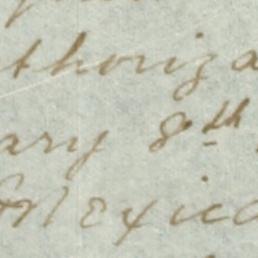 thoriza
ary 8th
Mexico